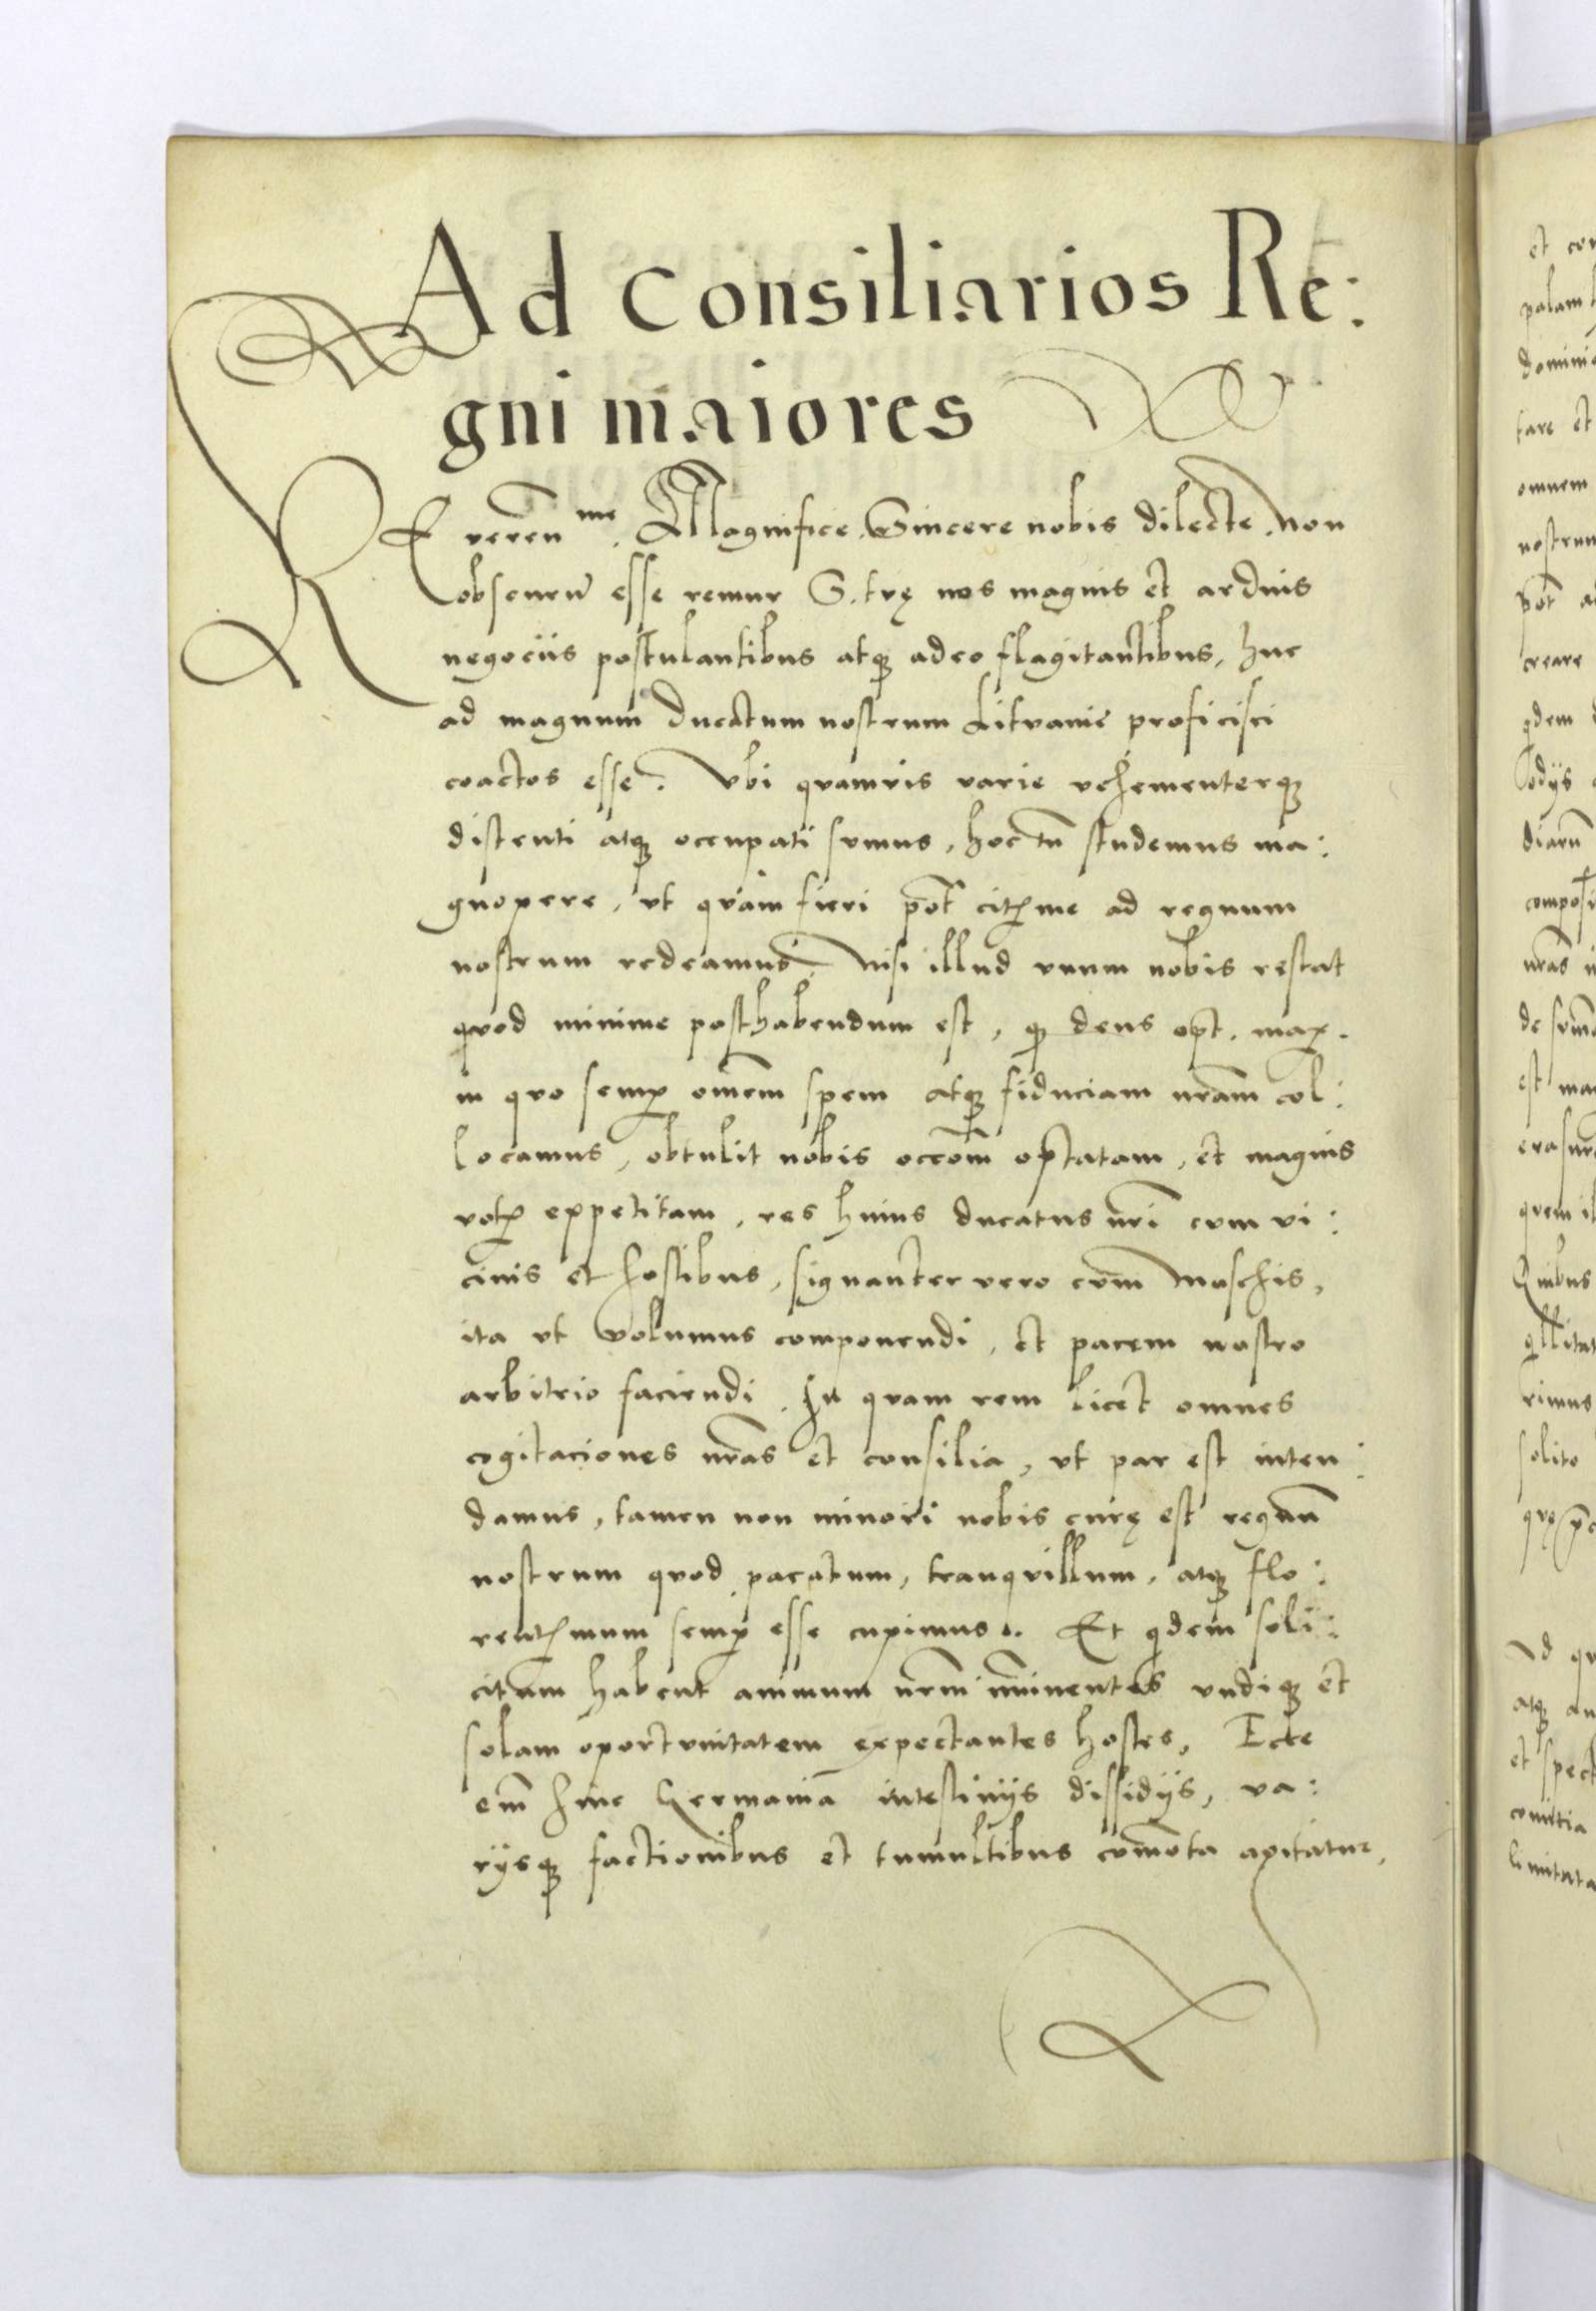 Ad Consiliarios Re:
gni maiores
REverẽn me. Magnifice. Sincere nobis dilecte. Non
obscurũ esse remur S. trę nos magnis et arduis
negociis postulantibus atq̃ adeo flagitantibus, huc
ad magnum ducatum nostrum Lituanie proficisci
coactos esse. Vbi quamvis varie vehementerq̃
distenti atq̃ occupati sumus, hoc tñ studemus ma:
gnopere, vt quam fieri põt citme ad regnum
nostrum redeamus. Nisi illud vnum nobis restat
quod minime posthabendum est, q̃ deus opt. max.
in quo semp̃ omẽm spem atq̃ fiduciam nrãm col:
locamus, obtulit nobis occõm optatam, et magnis
votis expetitam, res huius ducatus nrĩ cum vi:
cinis et hostibus, signanter vero cum Moschis,
ita vt volumus componendi, et pacem nostro
arbitrio faciendi. In quam rem licet omnes
cogitaciones nrãs et consilia, vt par est inten:
damus, tamen non minori nobis curę est regnũ
nostrum quod pacatum, tranquillum, atq̃ flo:
rentmum semp̃ esse cupimus. Et qdem soli:
citum habent animum nrm̃ im̃inentes vndiq̃ et
solam oportunitatem expectantes hostes. Ecce
em̃ hinc Germaniã intestinijs dissidijs, va:
rijsq̃ factionibus et tumultibus com̃ota agitatur,
et
palam
omnem
creare
qdem
diarũ
nrãs
est
Quibus
rimus
solito
atq̃
et
comitia